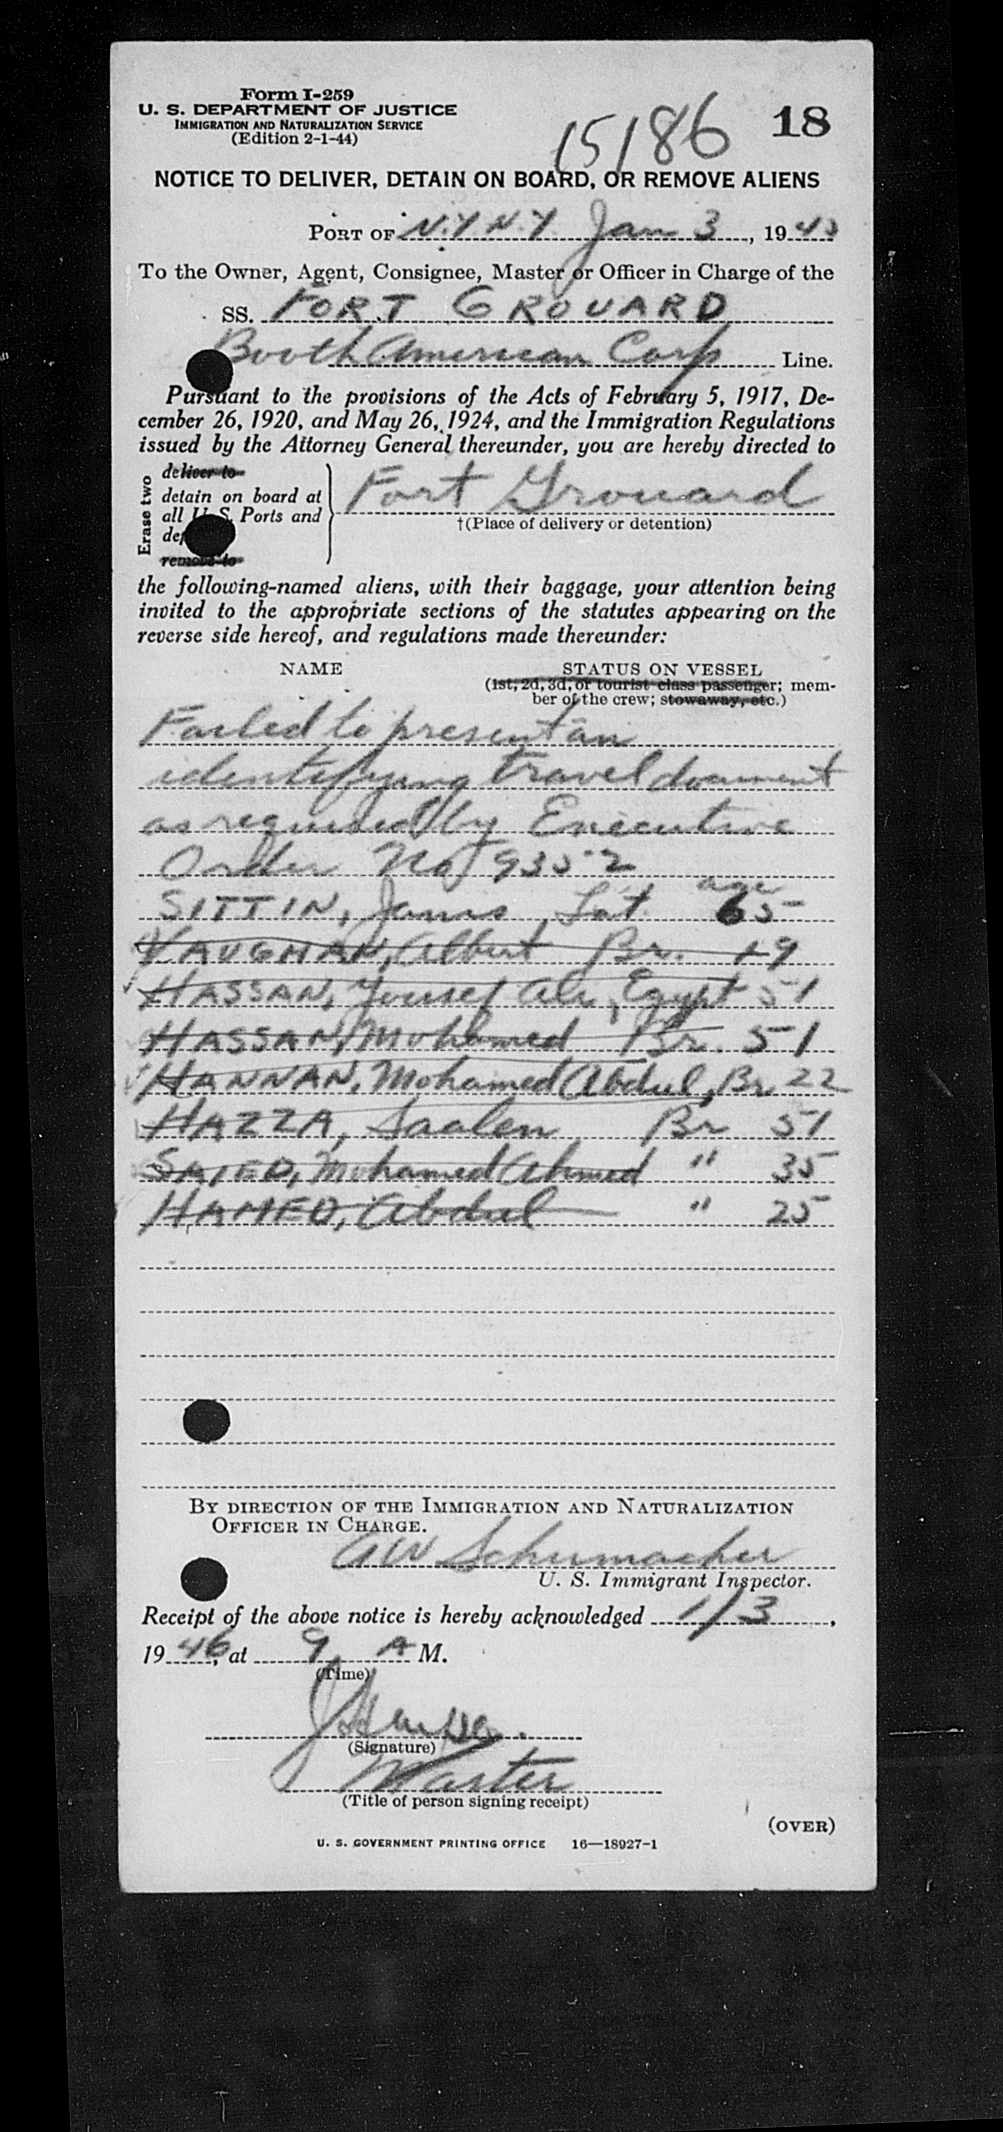 Form I-259
U. S. DEPARTMENT OF JUSTICE
IMMIGRATION AND NATURALIZATION SERVICE
(Edition 2-1-44)
15186
18
NOTICE TO DELIVER, DETAIN ON BOARD, OR REMOVE ALIENS
PORT OF N.Y. N.Y. Jan 3, 19
To the Owner, Agent, Consignee, Master or Officer in Charge of the
SS. FORT GROUARD
Booth American Corp Line.
Pursuant to the provisions of the Acts of February 5, 1917, De-
cember 26, 1920, and May 26, 1924, and the Immigration Regulations
issued by the Attorney General thereunder, you are hereby directed to
Erase two
deliver to
detain on board at
all U. S. Ports and
remove to
Fort Grouard
†(Place of delivery or detention)
the following-named aliens, with their baggage, your attention being
invited to the appropriate sections of the statutes appearing on the
reverse side hereof, and regulations made thereunder:
NAME STATUS ON VESSEL
(1st, 2d, 3d, or tourist class passenger; mem-
ber of the crew; stowaway, etc.)
Failed to present an
identifying travel document
as required by Executive
Order No 9352
age
SITTIN, Janis, Lat. 65
VAUGHAN, Albert Br. 19
HASSAN, Yousef Ali, Egypt 51
HASSAN, Mohamed Br. 51
HANNAN, Mohamed Abdul, Br 22
HAZZA, Saalen Br 51
SAIED, Mohamed Ahmed " 35
HAMED, Abdul " 25
BY DIRECTION OF THE IMMIGRATION AND NATURALIZATION
OFFICER IN CHARGE.
AW Schumacher
U. S. Immigrant Inspector.
Receipt of the above notice is hereby acknowledged 1/3,
1946, at 9 A M.
(Time)
(Signature)
Master
(Title of person signing receipt)
(OVER)
U. S. GOVERNMENT PRINTING OFFICE 16—18927-1